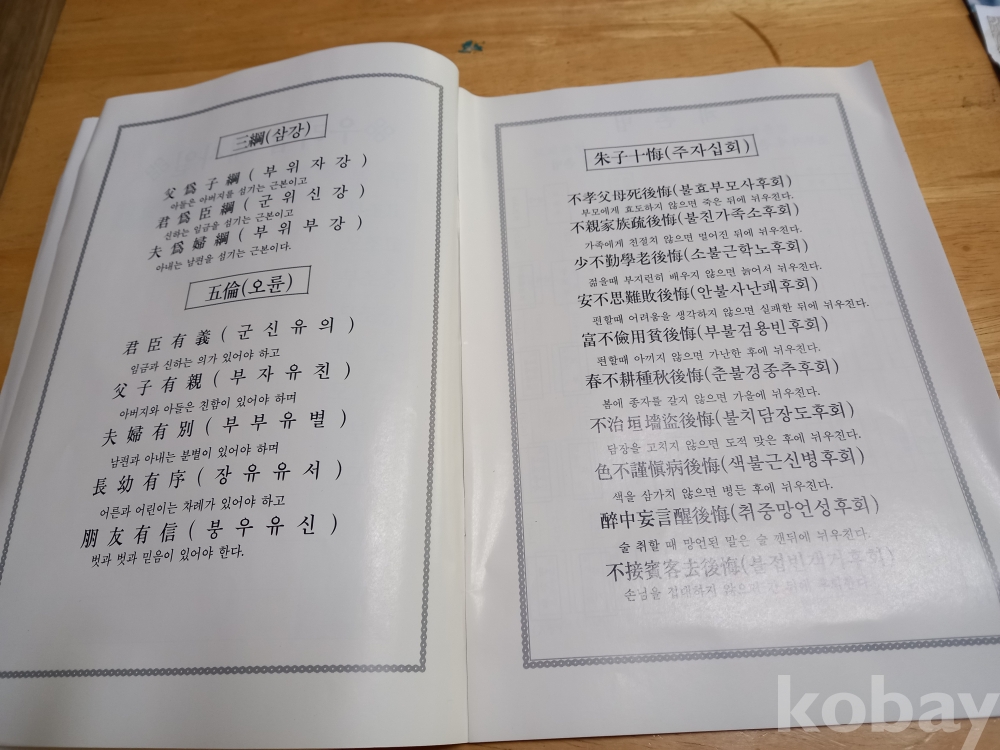 三綱(삼강)
父爲子綱(부위자강)
아들은 아버지를 섬기는 근본이고
君爲臣綱(군위신강)
신하는 임금을 섬기는 근본이고
夫爲婦綱(부위부강)
아내는 남편을 섬기는 근본이다.
五倫(오륜)
君臣有義(군신유의)
임금과 신하는 의가 있어야 하고
父子有親(부자유친)
아버지와 아들은 친함이 있어야 하며
夫婦有別(부부유별)
남편과 아내는 분별이 있어야 하며
長幼有序(장유유서)
어른과 어린이는 차례가 있어야 하고
朋友有信(붕우유신)
벗과 벗과 믿음이 있어야 한다.
朱子十悔(주자십회)
不孝父母死後悔(불효부모사후회)
부모에게 효도하지 않으면 죽은 뒤에 뉘우친다.
不親家族疏後悔(불친가족소후회)
가족에게 친절치 않으면 멀어진 뒤에 뉘우친다.
少不勤學老後悔(소불근학노후회)
젊을때 부지런히 배우지 않으면 늙어서 뉘우친다.
安不思難敗後悔(안불사난패후회)
편할때 어려움을 생각하지 않으면 실패한 뒤에 뉘우친다.
富不儉用貧後悔(부불검용빈후회)
편할때 아끼지 않으면 가난한 후에 뉘우친다.
春不耕種秋後悔(춘불경종추후회)
봄에 종자를 갈지 않으면 가을에 뉘우친다.
不治垣墻盜後悔(불치담장도후회)
담장을 고치지 않으면 도적 맞은 후에 뉘우친다.
色不謹愼病後悔(색불근신병후회)
색을 삼가치 않으면 병든 후에 뉘우친다.
醉中妄言醒後悔(취중망언성후회)
술 취할 때 망언된 말은 술 깬뒤에 뉘우친다.
不接賓客去後悔(불접빈객거후회)
손님을 접대하지 않으면 간 뒤에 뉘우친다.
kobay